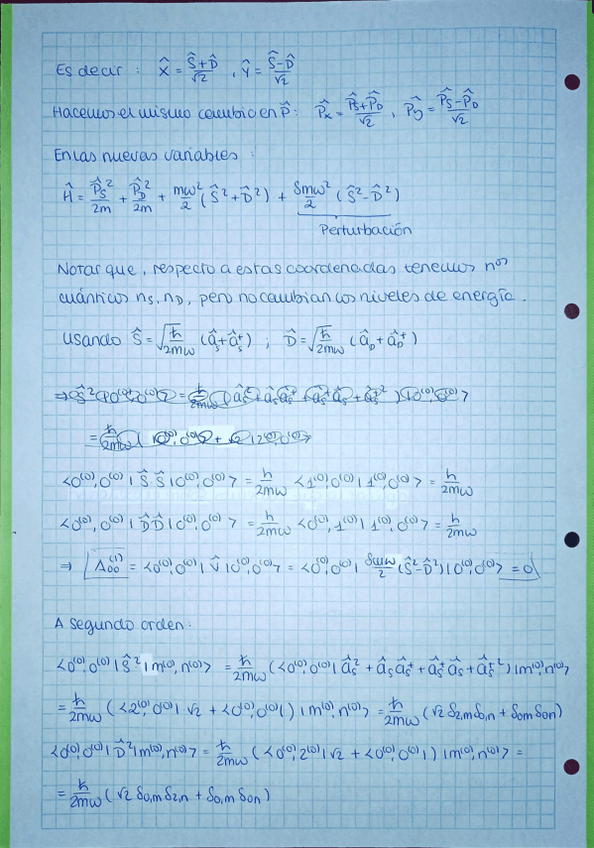 Es decir: X̂ = (Ŝ+D̂)/√2 , Ŷ = (Ŝ-D̂)/√2
Hacemos el mismo cambio en P̂: P̂x = (P̂s+P̂D)/√2 , P̂y = (P̂s-P̂D)/√2
En las nuevas variables:
Ĥ = P̂s²/2m + P̂D²/2m + mω²/2 (Ŝ²+D̂²) + δmω²/2 (Ŝ²-D̂²)
Perturbación
Notar que, respecto a estas coordenadas tenemos nºs
cuánticos ns, nD, pero no cambian los niveles de energía.
Usando Ŝ = √(ħ/2mω) (âs+âs⁺) ; D̂ = √(ħ/2mω) (âD+âD⁺)
<0⁽⁰⁾,0⁽⁰⁾| Ŝ Ŝ |0⁽⁰⁾,0⁽⁰⁾> = ħ/2mω <1⁽⁰⁾,0⁽⁰⁾|1⁽⁰⁾,0⁽⁰⁾> = ħ/2mω
<0⁽⁰⁾,0⁽⁰⁾| D̂ D̂ |0⁽⁰⁾,0⁽⁰⁾> = ħ/2mω <0⁽⁰⁾,1⁽⁰⁾|1⁽⁰⁾,0⁽⁰⁾> = ħ/2mω
⇒ Δ₀₀⁽¹⁾ = <0⁽⁰⁾,0⁽⁰⁾| V̂ |0⁽⁰⁾,0⁽⁰⁾> = <0⁽⁰⁾,0⁽⁰⁾| δmω/2 (Ŝ²-D̂²) |0⁽⁰⁾,0⁽⁰⁾> = 0
A segundo orden:
<0⁽⁰⁾,0⁽⁰⁾| Ŝ² |m⁽⁰⁾,n⁽⁰⁾> = ħ/2mω (<0⁽⁰⁾,0⁽⁰⁾| âs² + âs âs⁺ + âs⁺ âs + âs⁺²) |m⁽⁰⁾,n⁽⁰⁾>
= ħ/2mω (<2⁽⁰⁾,0⁽⁰⁾| √2 + <0⁽⁰⁾,0⁽⁰⁾|) |m⁽⁰⁾,n⁽⁰⁾> = ħ/2mω (√2 δ2,m δ0,n + δ0m δ0n)
<0⁽⁰⁾,0⁽⁰⁾| D̂² |m⁽⁰⁾,n⁽⁰⁾> = ħ/2mω (<0⁽⁰⁾,2⁽⁰⁾| √2 + <0⁽⁰⁾,0⁽⁰⁾|) |m⁽⁰⁾,n⁽⁰⁾> =
= ħ/2mω (√2 δ0,m δ2,n + δ0,m δ0n)